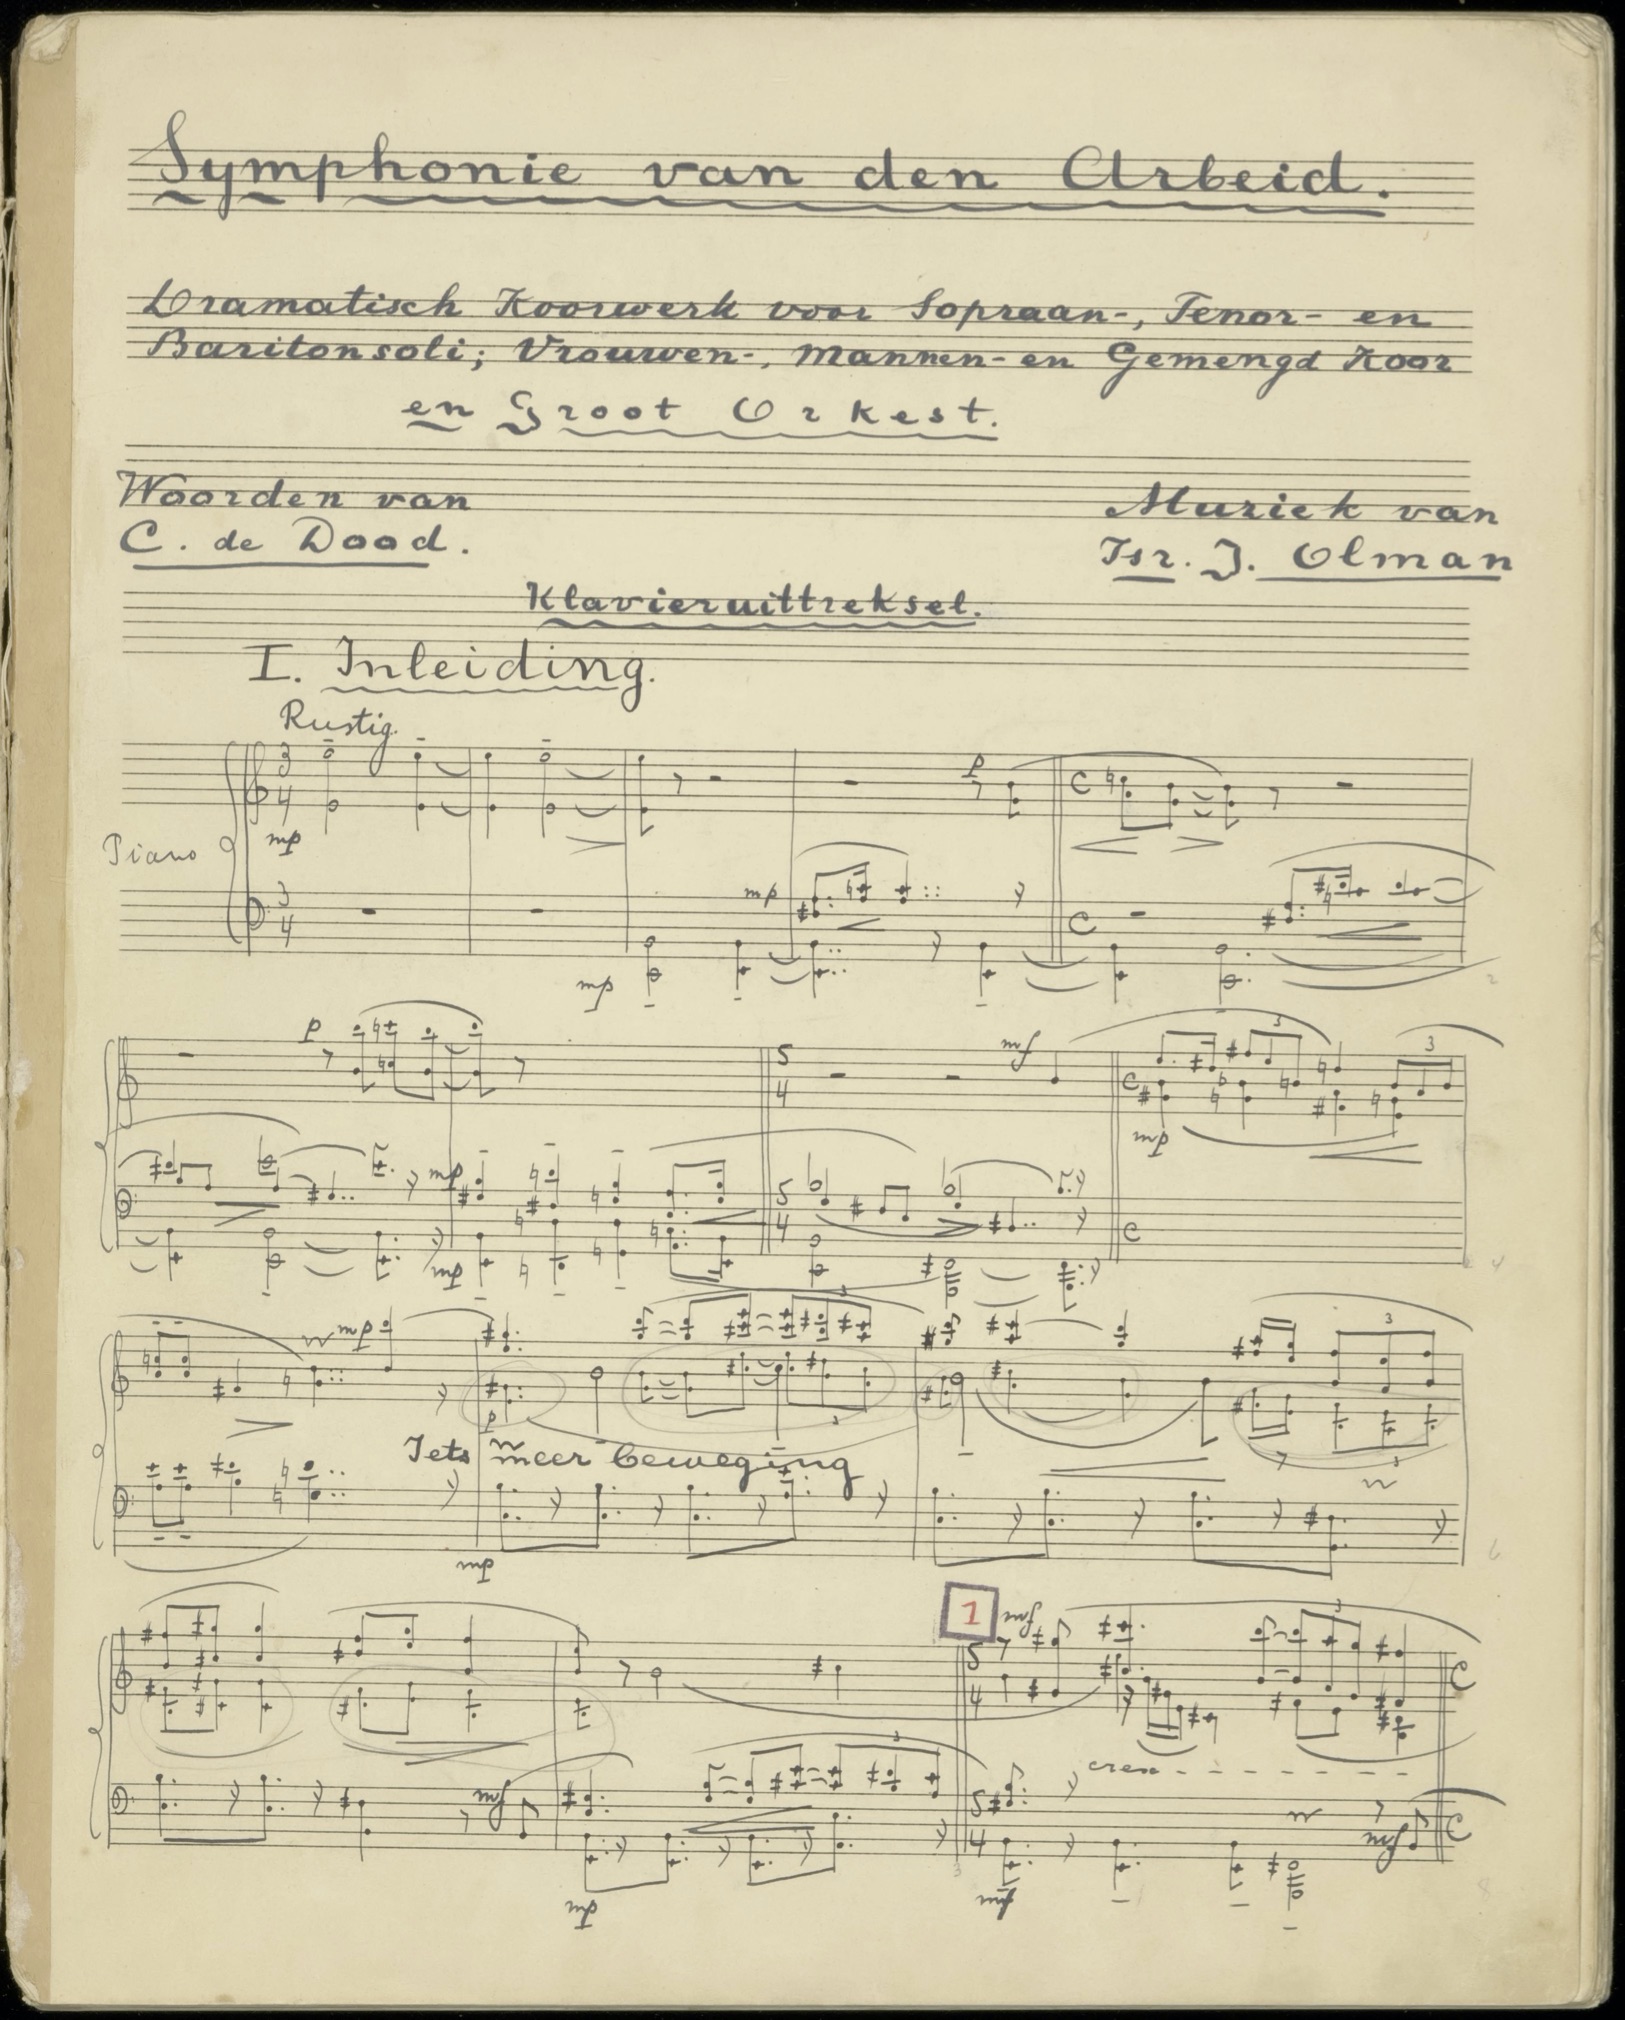 Symphonie van den Arbeid.
Dramatisch Koorwerk voor Sopraan-, Tenor- en
Bariton soli; Vrouwen-, Mannen- en Gemengd Koor
en Groot Orkest.
Woorden van
C. de Dood.
Muziek van
Isr. J. Olman
Klavieruittreksel.
I. Inleiding.
Rustig.
3 4
mp
Piano
p
C
3 4
mp
C
mp
2
p
5 4
mf
C
3
3
mp
mp
mp
5 4
C
4
mp
3
3
p
3
3
Iets meer beweging
mp
6
1
mf
5 4
3
C
mf
3
cresc
5 4
mf
C
mp
mf
3
8